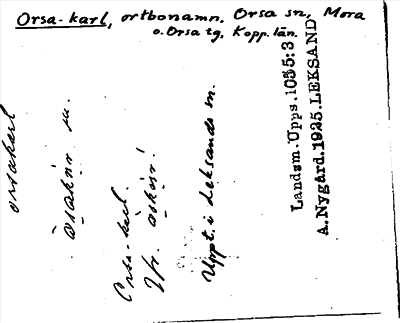 Orsa-karl, ortbonamn. Orsa sn, Mora
o. Orsa tg, Kopp. län.
orsakarl
m.
Orsa-karl.
Jfr.
Uppt. i Leksands sn.
Landsm. Upps. 1035:3
A. Nygård. 1925. LEKSAND